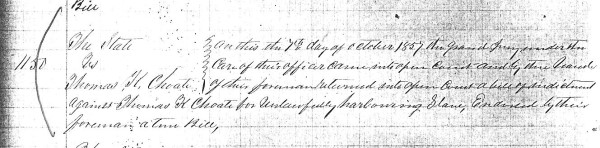 Bill
The State } on this the 7th day of October 1857 the Grand Jury under the
1150 vs } Care of their officer came into open Court and by the hands
Thomas H. Choate } of their foreman returned into open Court a bill of indictment
against Thomas H Choate for unlawfully harbouring Slave, Endorsed by their
foreman a true Bill,